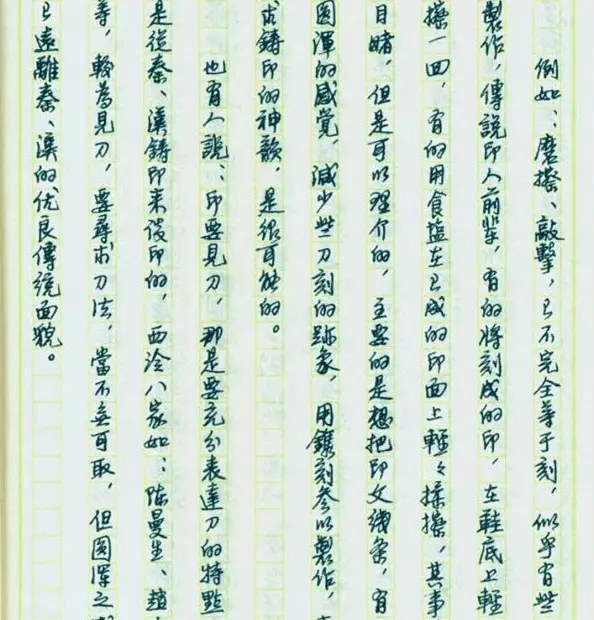 例如：磨擦、敲擊，已不完全等于刻，似乎有些
製作，傳說印人前輩，有的將刻成的印，在鞋底上輕
擦一回，有的用食塩在已成的印面上輕々揉擦，其事
目睹，但是可以理介的，主要的是想把印文綫条，有
圓渾的感覺，減少些刀刻的跡象，用鐫刻参以製作，
求鋳印的神韻，是很可能的。
也有人說：印要見刀，那是要充分表達刀的特點
是從秦、漢鋳印来後印的，西泠八家如：陈曼生、趙
等，較為見刀，要尋求刀法，當不無可取，但圓渾之
已遠離秦、漢的优良傳统面貌。